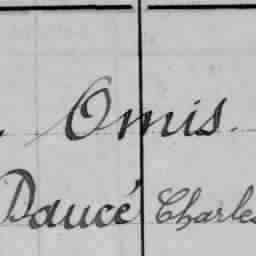 Omis.
Daucé Charles